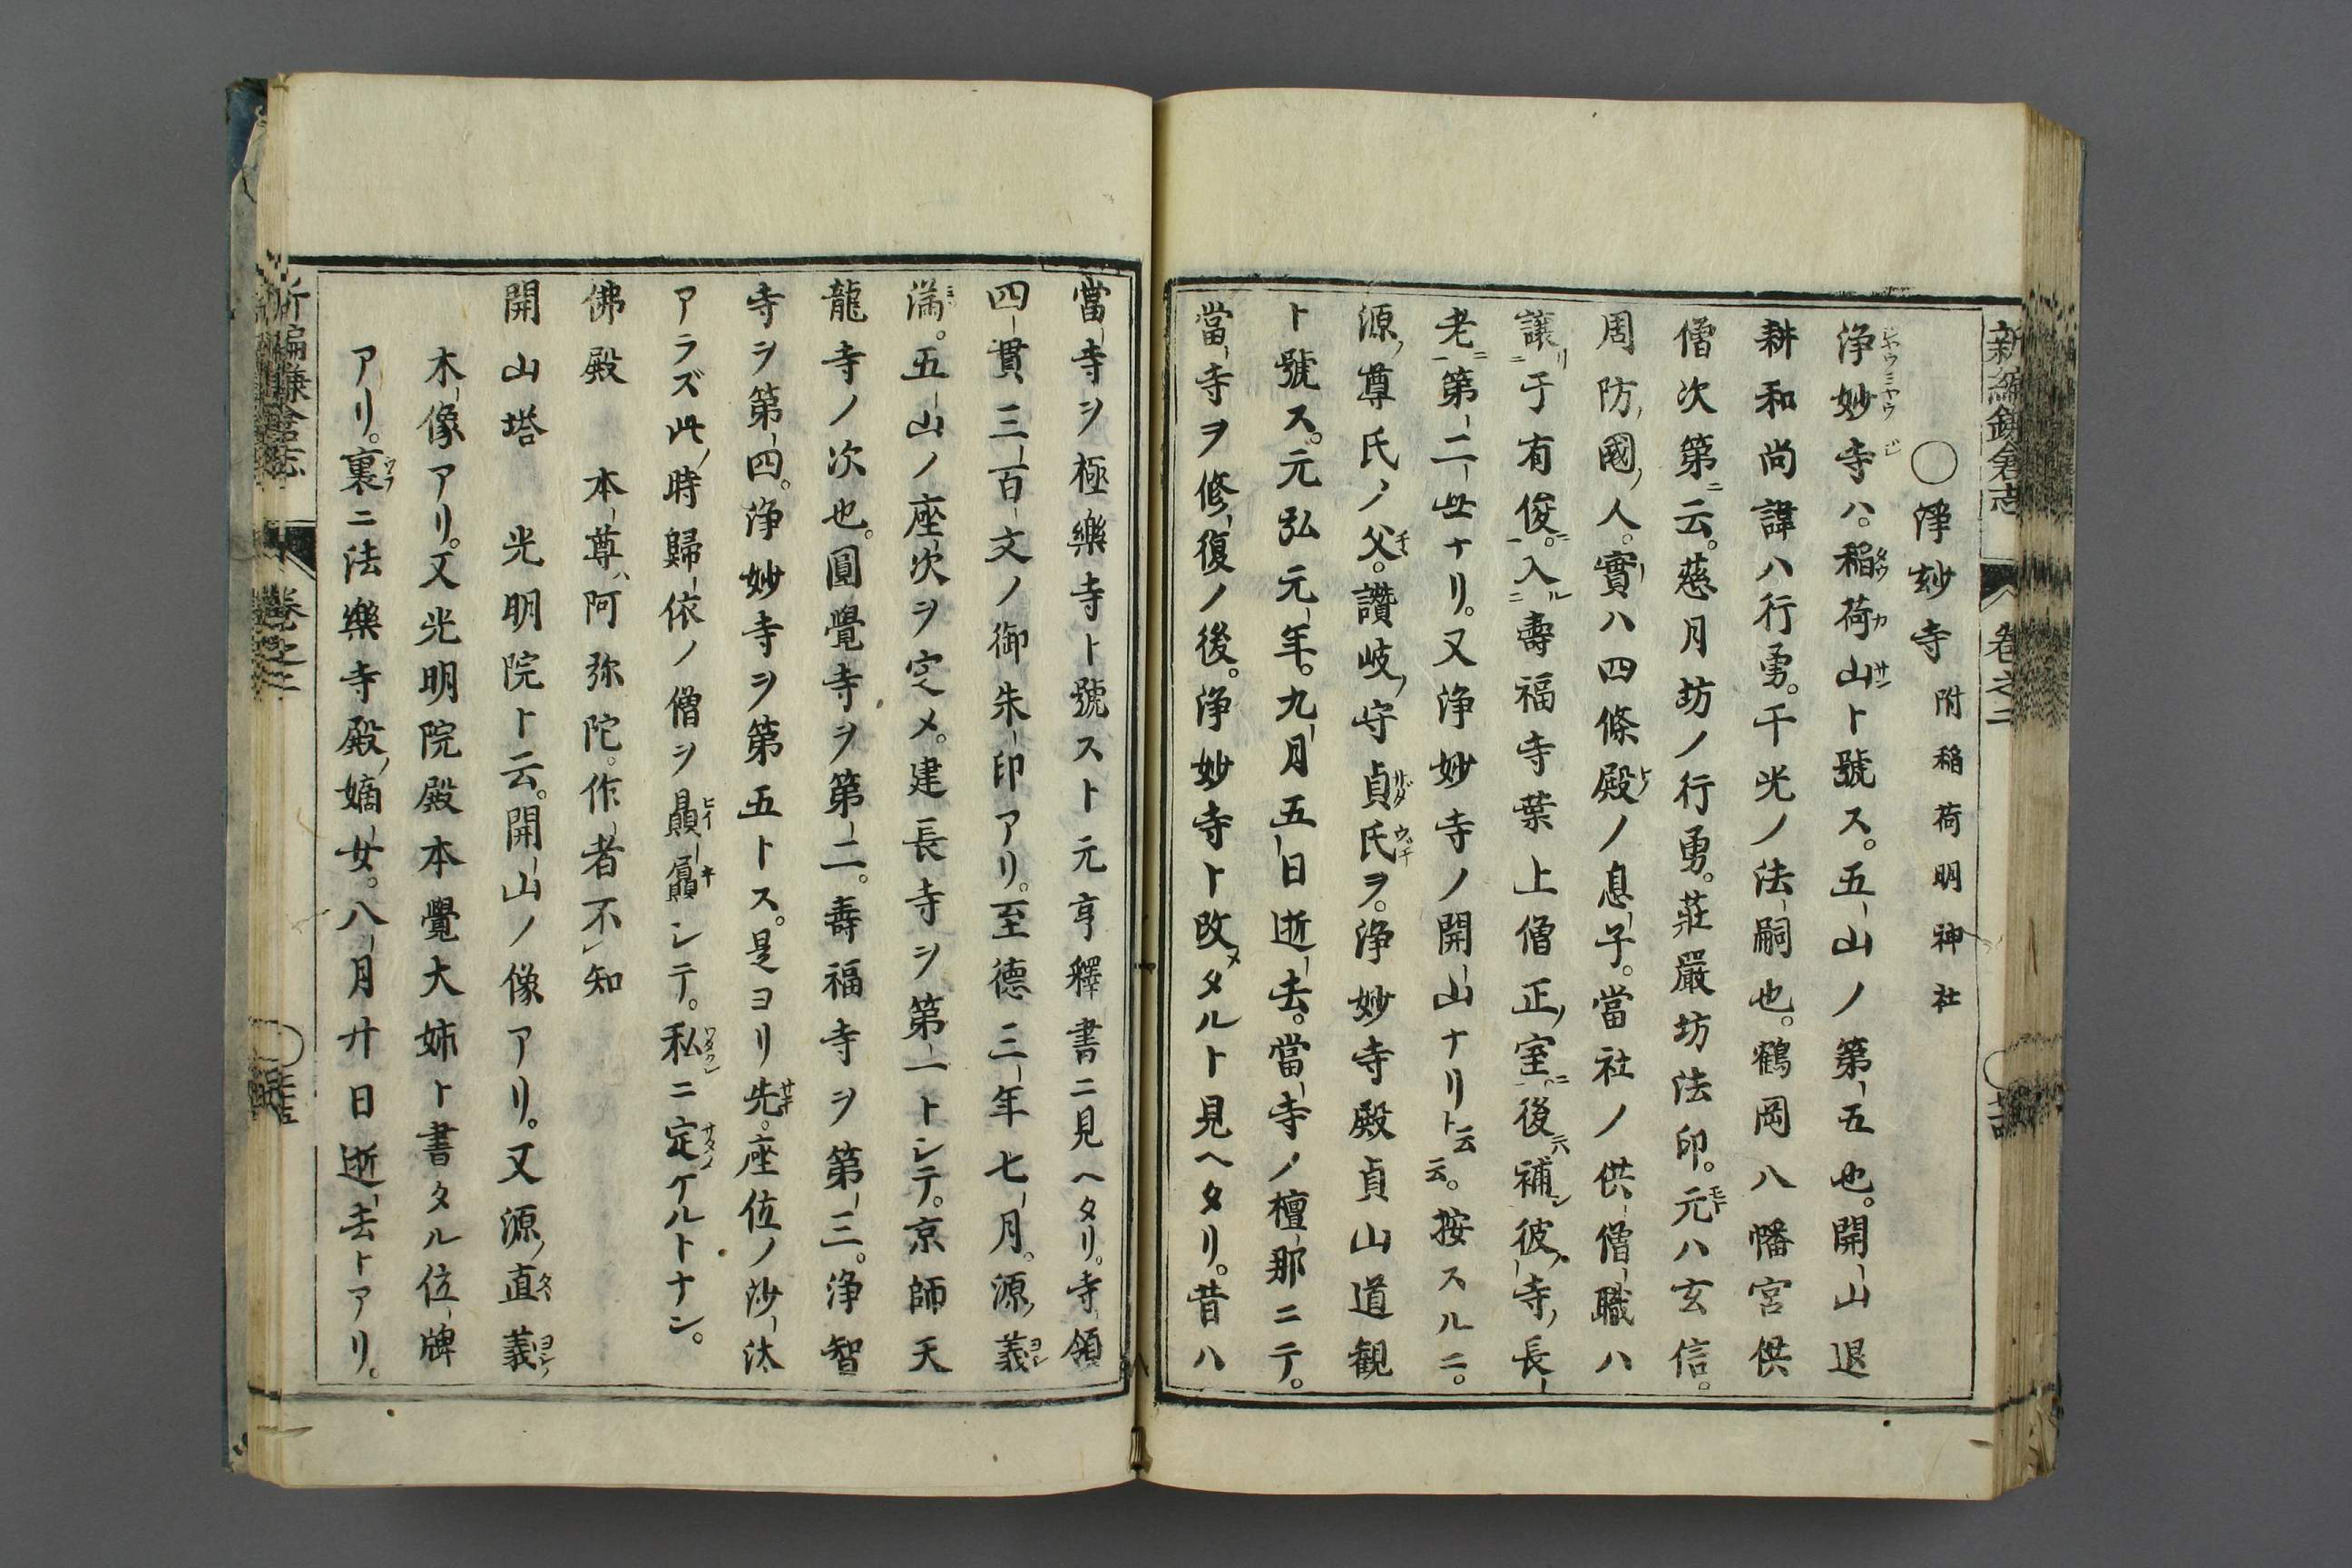 新編鎌倉志 卷之二
〇淨妙寺 附稲荷明神社
浄妙寺ハ。稲荷山ト號ス。五山ノ第五也。開山退
耕和尚諱ハ行勇。千光ノ法嗣也。鶴岡八幡宮供
僧次第ニ云。慈月坊ノ行勇。莊嚴坊法印。元ハ玄信。
周防國人。實ハ四條殿ノ息子。當社ノ供僧職ハ
讓リ于有俊。入ル壽福寺葉上僧正室。後ニハ補シ彼寺長
老。第二世ナリ。又浄妙寺ノ開山ナリト云云。按スルニ。
源尊氏ノ父。讚岐守貞氏ヲ。浄妙寺殿貞山道観
ト號ス。元弘元年。九月五日逝去。當寺ノ檀那ニテ。
當寺ヲ修復ノ後。浄妙寺ト改メタルト見ヘタリ。昔ハ
當寺ヲ極樂寺ト號スト元亨釋書ニ見ヘタリ。寺領
四貫三百文ノ御朱印アリ。至德三年七月。源義
満。五山ノ座次ヲ定メ。建長寺ヲ第一トシテ。京師天
龍寺ノ次也。圓覺寺ヲ第二。壽福寺ヲ第三。浄智
寺ヲ第四。浄妙寺ヲ第五トス。是ヨリ先。座位ノ沙汰
アラズ此時歸依ノ僧ヲ贔屓シテ。私ニ定ケルトナン。
佛殿 本尊ハ阿弥陀。作者不知
開山塔 光明院ト云。開山ノ像アリ。又源直義
木像アリ。又光明院殿本覺大姉ト書タル位牌
アリ。裏ニ法樂寺殿嫡女。八月廿日逝去トアリ。
新編鎌倉志 卷之二